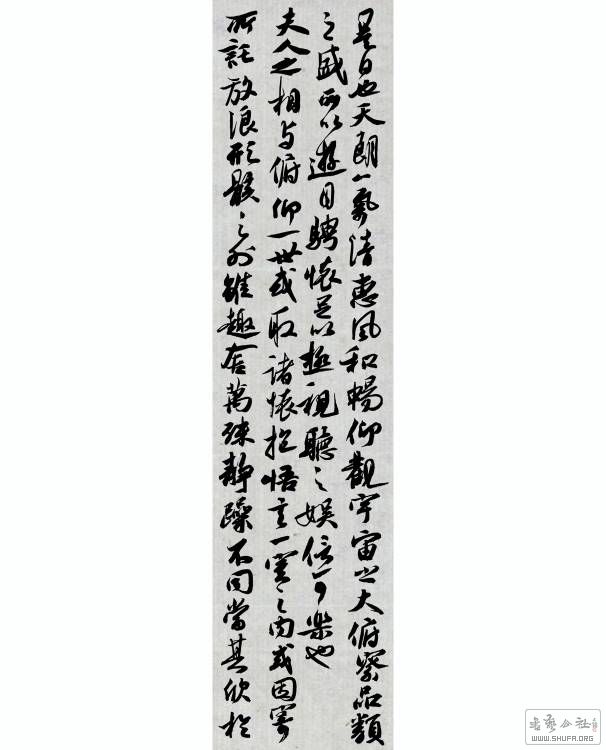 是日也天朗氣清惠風和暢仰觀宇宙之大俯察品類
之盛所以遊目騁懷足以極視聽之娛信可樂也
夫人之相与俯仰一世或取諸懷抱悟言一室之內或因寄
所託放浪形骸之外雖趣舍萬殊靜躁不同當其欣於
书艺公社
WWW.SHUFA.ORG